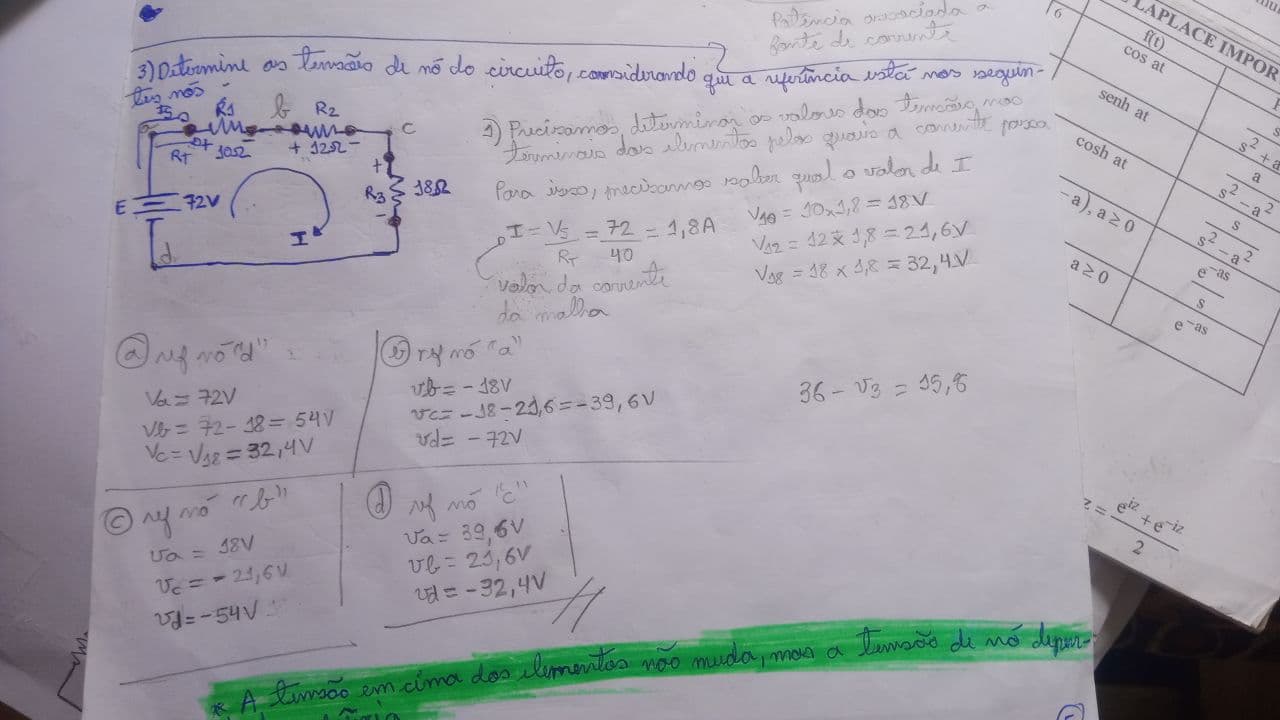 Potência associada a
fonte de corrente
3) Determine as tensão de nó do circuito, considerando que a referência está nos seguin-
tes nós
R1
b
R2
c
a
RT
+
10Ω
+ 12Ω -
+
R3
18Ω
-
E
72V
I
d
1) Precisamos determinar os valores das tensões nos
terminais dos elementos pelos quais a corrente passa
Para isso, precisamos saber qual o valor de I
I = VS/RT = 72/40 = 1,8A
valor da corrente
da malha
V10 = 10x1,8 = 18V
V12 = 12 x 1,8 = 21,6V
V18 = 18 x 1,8 = 32,4V
a) ref nó "d"
Va = 72V
Vb = 72 - 18 = 54V
Vc = V18 = 32,4V
b) ref nó "a"
vb = - 18V
vc = -18 - 21,6 = -39,6V
vd = - 72V
36 - v3 = 15,6
c) ref nó "b"
va = 18V
vc = - 21,6V
vd = - 54V
d) ref nó "c"
va = 39,6V
vb = 21,6V
vd = -32,4V
* A tensão em cima dos elementos não muda, mas a tensão de nó depen-
LAPLACE IMPOR
f(t)
cos at
senh at
cosh at
-a), a ≥ 0
a ≥ 0
s
s² + a
a
s² - a²
s
s² - a²
e^-as
s
e^-as
z = (e^iz + e^-iz)/2